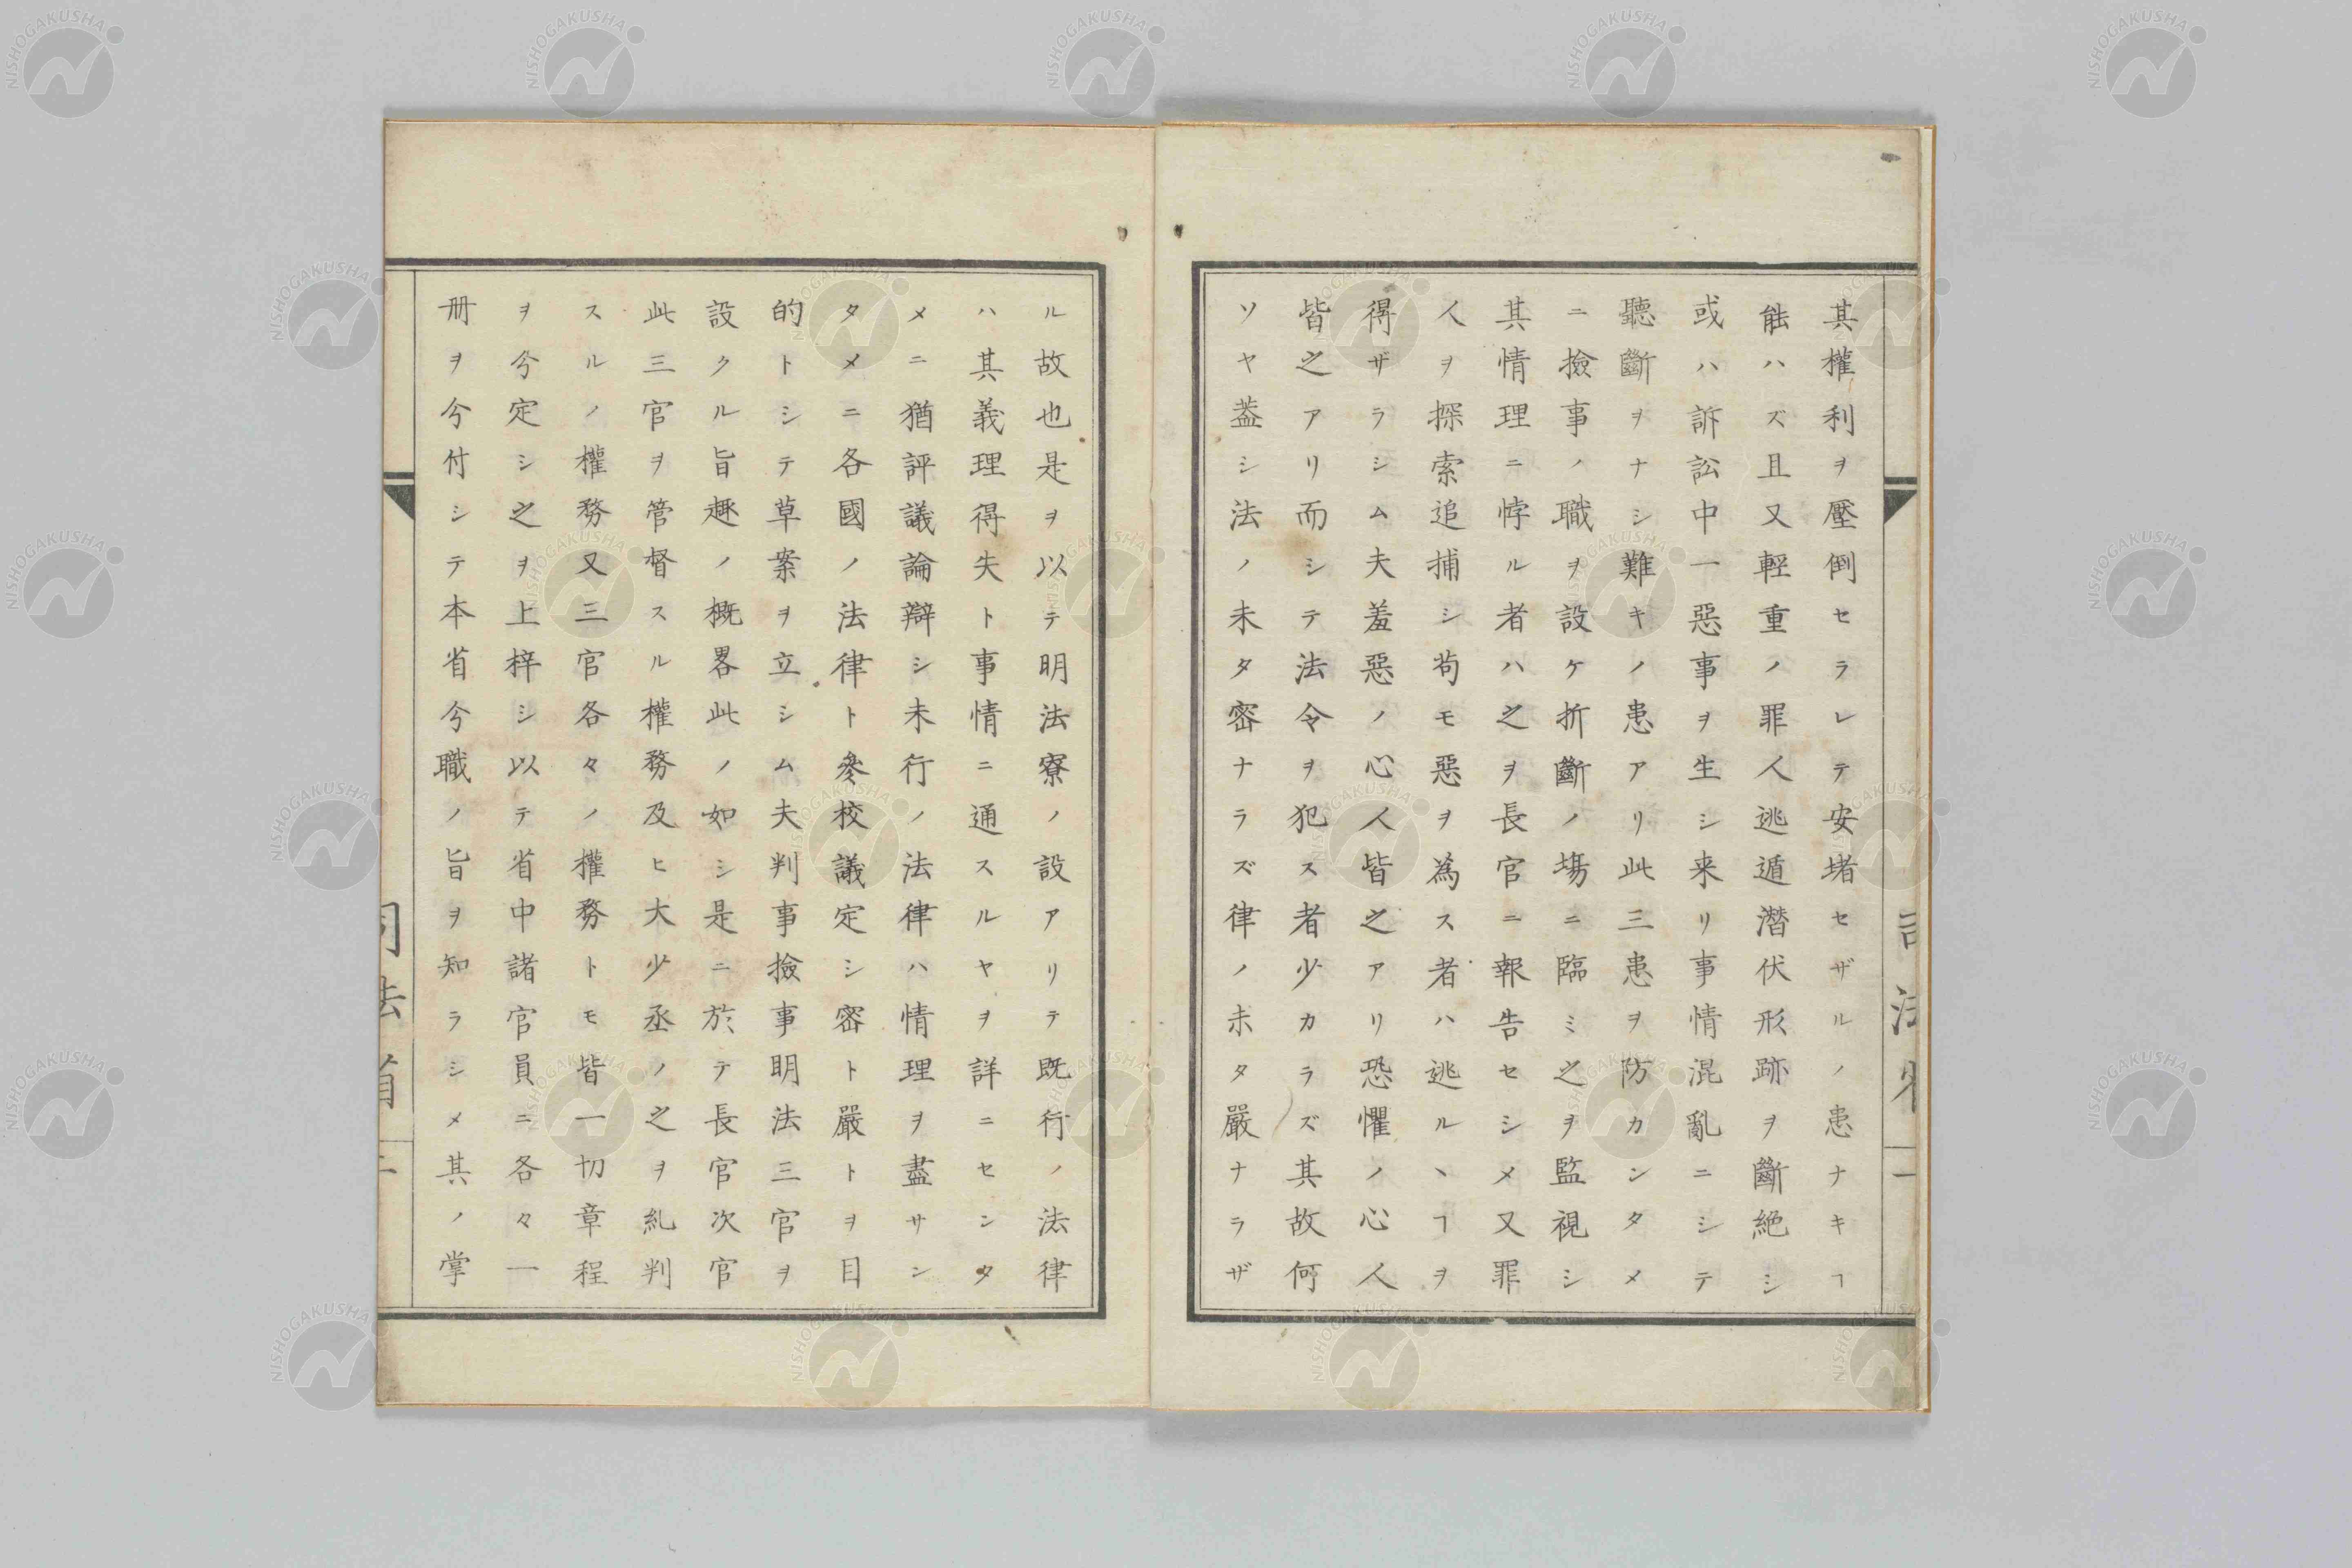 其權利ヲ壓倒セラレテ安堵セザルノ患ナキヿ
能ハズ且又輕重ノ罪人逃遁潜伏形跡ヲ斷絶シ
或ハ訴訟中一惡事ヲ生シ来リ事情混亂ニシテ
聽斷ヲナシ難キノ患アリ此三患ヲ防カンタメ
ニ撿事ノ職ヲ設ケ折斷ノ塲ニ臨ミ之ヲ監視シ
其情理ニ悖ル者ハ之ヲ長官ニ報告セシメ又罪
人ヲ探索追捕シ苟モ惡ヲ為ス者ハ逃ルヽヿヲ
得ザラシム夫羞惡ノ心人皆之アリ恐懼ノ心人
皆之アリ而シテ法令ヲ犯ス者少カラズ其故何
ソヤ葢シ法ノ未タ密ナラズ律ノ未タ嚴ナラザ
ル故也是ヲ以テ明法寮ノ設アリテ既行ノ法律
ハ其義理得失ト事情ニ通スルヤヲ詳ニセンタ
メニ猶評議論辯シ未行ノ法律ハ情理ヲ盡サン
タメニ各國ノ法律ト參校議定シ密ト嚴トヲ目
的トシテ草案ヲ立シム夫判事撿事明法三官ヲ
設クル旨趣ノ概畧此ノ如シ是ニ於テ長官次官
此三官ヲ管督スル權務及ヒ大少丞ノ之ヲ糺判
スルノ權務又三官各々ノ權務トモ皆一切章程
ヲ兮定シ之ヲ上梓シ以テ省中諸官員ニ各々一
册ヲ兮付シテ本省兮職ノ旨ヲ知ラシメ其ノ掌
司法省
NISHOGAKUSHA